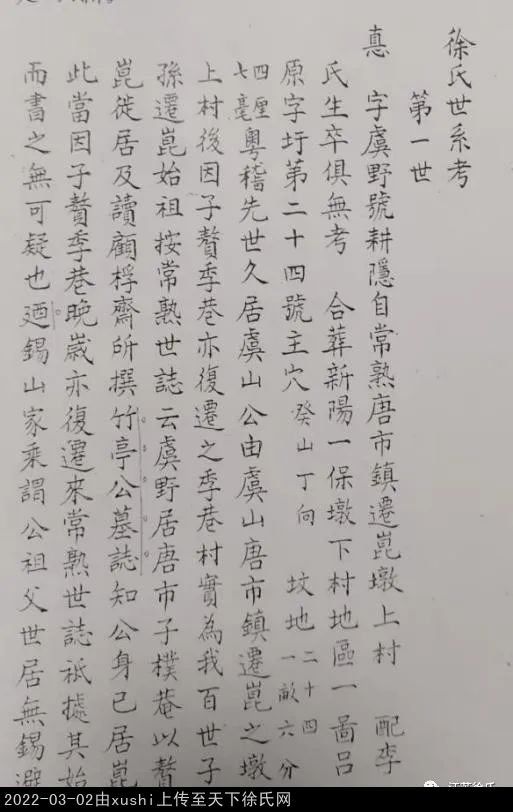 徐氏世系考
第一世
惪 字虞野號耕隱自常熟唐市鎮遷崑墩上村 配李
氏生卒俱無考 合葬新陽一保墩下村地區一啚呂
原字圩第二十四號主穴癸山丁向 坟地一畝六分二十四
四厘七毫粵稽先世久居虞山公由虞山唐市鎮遷崑之墩
上村後因子贅季巷亦復遷之季巷村實為我百世子
孫遷崑始祖按常熟世誌云虞野居唐市子樸菴以贅
崑徙居及讀顧桴齋所撰竹亭公墓誌知公身已居崑
此當因子贅季巷晚歲亦復遷來常熟世誌祗據其始
而書之無可疑也廼錫山家乘謂公祖父世居無錫避
2022-03-02由xushi上传至天下徐氏网